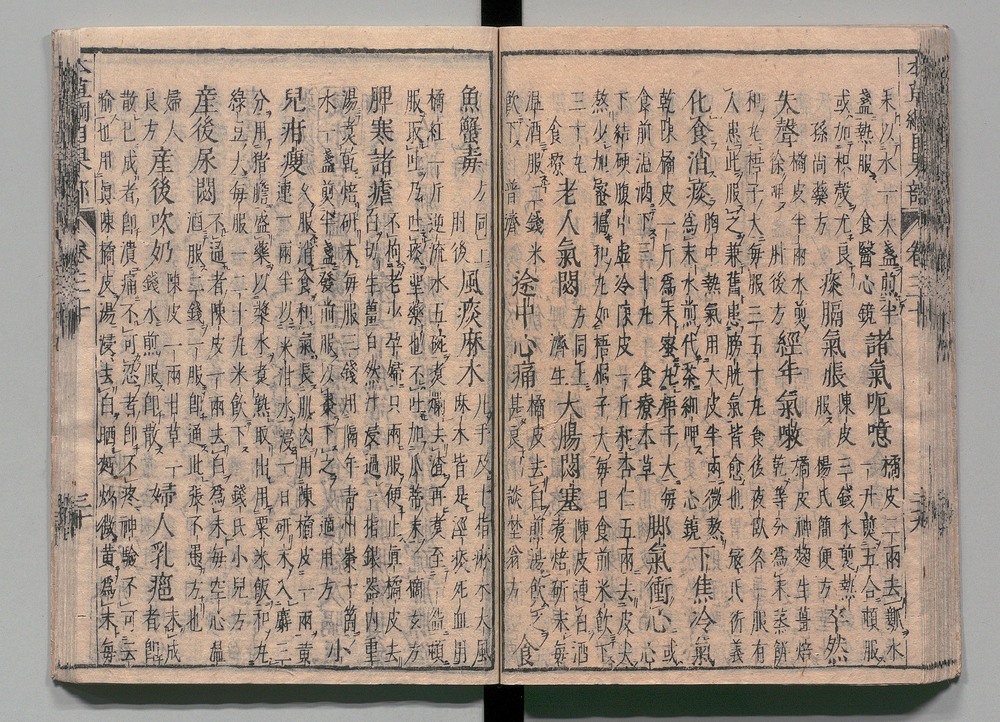 末以水一大盞煎半
盞熱服 食醫心鏡 諸氣呃噫 橘皮二兩去瓤水
一升煎五合頓服
或加枳殼尤良
孫尚藥方 痰膈氣脹 陳皮三錢水煎熱
服 楊氏簡便方 卒然
失聲 橘皮半兩水煎
徐呷 肘後方 經年氣嗽 橘皮神麴生薑焙
乾等分爲末蒸餅
和丸梧子大每服三五十丸食後夜臥各一服有
人患此服之兼舊患膀胱氣皆愈也 寇氏衍義
化食消痰 胸中熱氣用大皮半兩微熬
爲末水煎代茶細呷 心鏡 下焦冷氣
乾陳橘皮一斤爲末蜜丸梧子大每
食前溫酒下三十丸 食療本草 脚氣衝心 或心
下結硬腹中虛冷陳皮一斤和杏仁五兩去皮尖
熬少加蜜搗和丸如梧桐子大每日食前米飲下
三十丸
食療 老人氣閟 方同上
濟生 大腸閟塞 陳皮連白酒
煮焙研末每
溫酒服二錢米
飲下 普濟 途中心痛 橘皮去白煎湯飲之
甚良 談埜翁方 食
魚蟹毒 方同上
肘後 風痰麻木 凡手及十指麻木大風
麻木皆是濕痰死血用
橘紅一斤逆流水五碗煮爛去渣再煮至一碗頓
服取吐乃吐痰聖藥也不吐加瓜蒂末 摘玄方
脾寒諸瘧 不拘老小孕婦只兩服便止真橘皮去
白切生薑自然汁浸過一指銀器內重
湯煮乾焙研末每服三錢用隔年青州棗十箇
水一盞煎半盞發前服以棗下之 適用方 小
兒疳瘦 久服消食和氣長肌肉用陳橘皮一兩黃
連一兩半以米泔水浸一日研末入麝三
分用猪膽盛藥以漿水煮熟取出用粟米飯和丸
綠豆大每服一二十丸米飲下 錢氏小兒方
產後尿閟 不通者陳皮一兩去白爲末每空心溫
酒服二錢一服即通此張不愚方也
婦人
良方 產後吹奶 陳皮一兩甘草一
錢水煎服即散 婦人乳癰 未成
者即
散已成者即潰痛不可忍者即不疼神驗不可云
喻也用真陳橘皮湯浸去白晒麵炒微黃爲末每